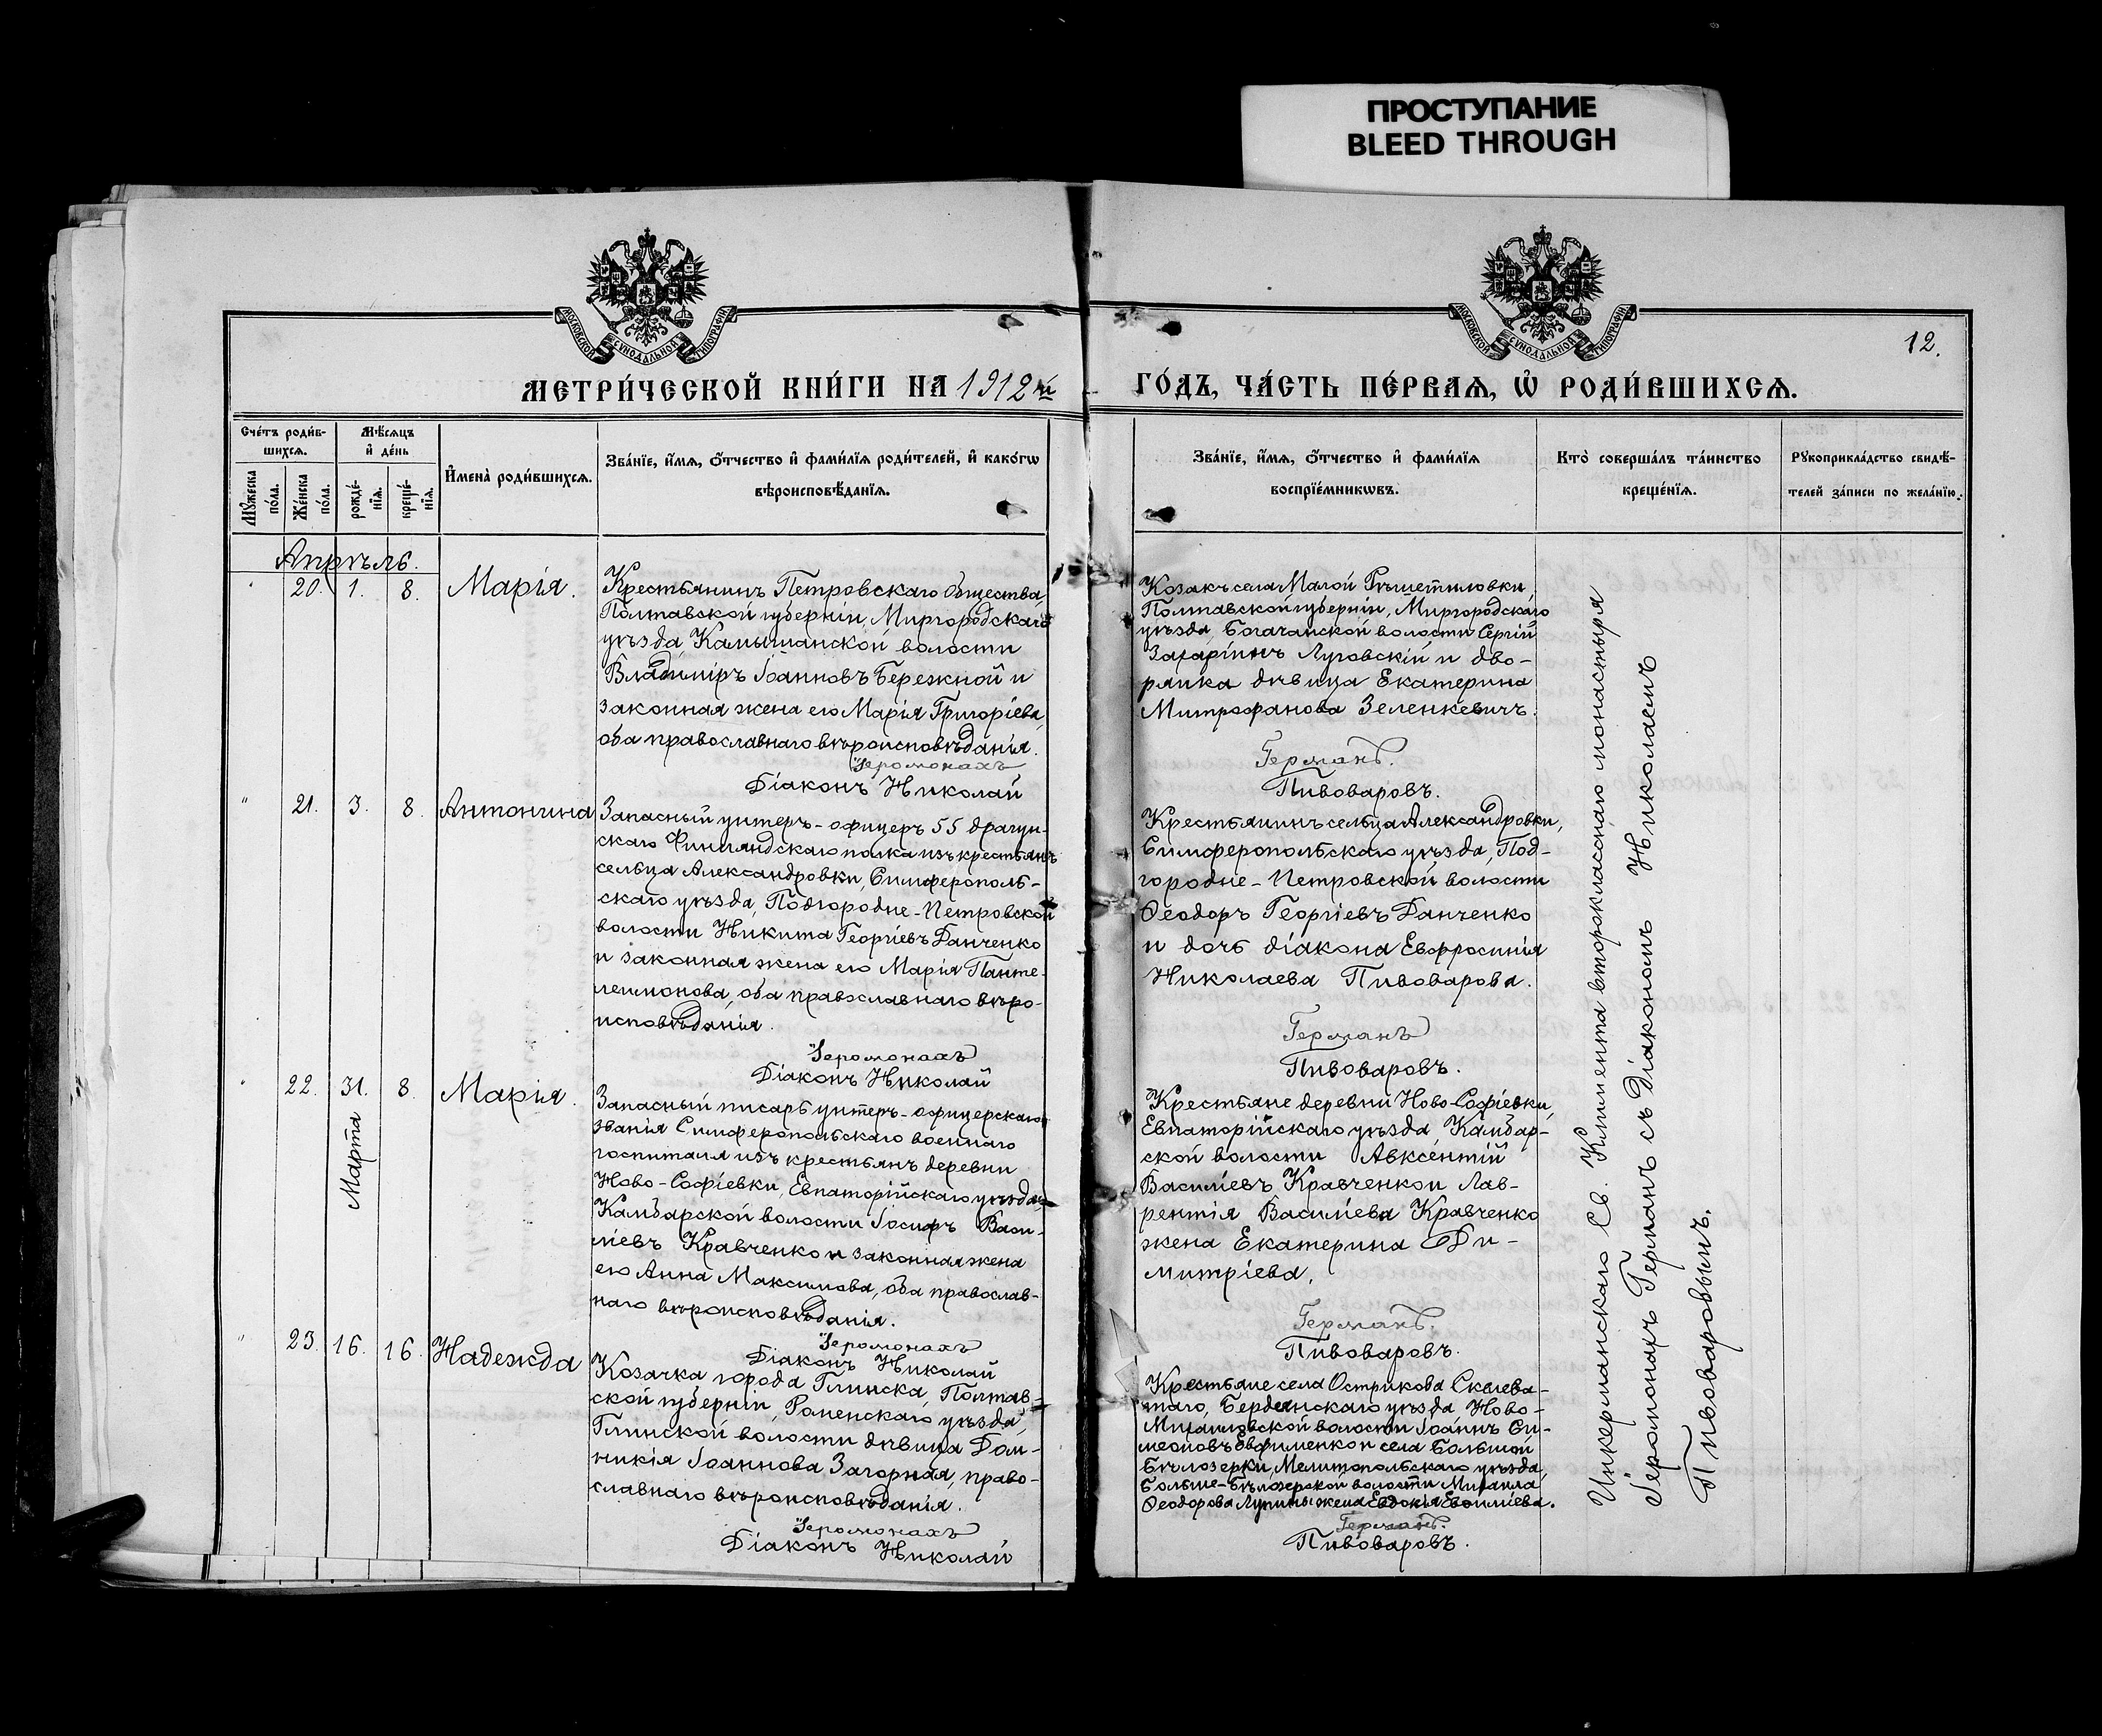 ПРОСТУПАНИЕ
BLEED THROUGH
МОСКОВСКОЙ СѴНОДАЛЬНОЙ ТИПОГРАФІИ
МОСКОВСКОЙ СѴНОДАЛЬНОЙ ТИПОГРАФІИ
12.
МЕТРИ́ЧЕСКОЙ КНИ́ГИ НА 1912й
ГО́ДЪ, ЧА́СТЬ ПЕ́РВАѦ, Ѡ҆ РОДИ́ВШИХСѦ.
Сче́тъ роди́в-
шихсѧ.
Мꙋ́жеска по́ла.
Же́нска по́ла.
Мѣ́сѧцъ
и҆ де́нь
рожде́-
нїѧ.
креще́-
нїѧ.
И҆мена̀ роди́вшихсѧ.
Зва́нїе, и҆́мѧ, ѻ҆́тчество и҆ фами́лїѧ роди́телей, и҆ како́гѡ
вѣроисповѣ́данїѧ.
Зва́нїе, и҆́мѧ, ѻ҆́тчество и҆ фами́лїѧ
воспрїе́мникѡвъ.
Кто̀ соверша́лъ та́инство
креще́нїѧ.
Рꙋкоприкла́дство свидѣ́-
телей за́писи по жела́нїю.
Апрѣль.
" 20. 1. 8. Марія.
Крестьянинъ Петровскаго общества,
Полтавской губерніи, Миргородскаго
уѣзда, Камышанской волости
Владиміръ Іоанновъ Бережной и
законная жена его Марія Григоріева,
оба православнаго вѣроисповѣданія.
Іеромонахъ
Діаконъ Николай
Козакъ села Малой Рѣшетиловки,
Полтавской губерніи, Миргородскаго
уѣзда, Богачанской волости Сергій
Захаріинъ Луговскій и дво-
рянка дѣвица Екатерина
Митрофанова Зеленкевичъ.
Германъ.
Пивоваровъ.
" 21. 3. 8. Антонина
Запасный унтеръ-офицеръ 55 драгун-
скаго Финляндскаго полка изъ крестьянъ
сельца Александровки, Симферополь-
скаго уѣзда, Подгородне-Петровской
волости Никита Георгіевъ Данченко
и законная жена его Марія Панте-
леимонова, оба православнаго вѣро-
исповѣданія.
Іеромонахъ
Діаконъ Николай
Крестьянинъ сельца Александровки,
Симферопольскаго уѣзда, Под-
городне-Петровской волости
Ѳеодоръ Георгіевъ Данченко
и дочь діакона Евфросинія
Николаева Пивоварова.
Германъ
Пивоваровъ.
" 22. 31. Марта 8. Марія.
Запасный писарь унтеръ-офицерскаго
званія Симферопольскаго военнаго
госпиталя изъ крестьянъ деревни
Ново-Софіевки, Евпаторійскаго уѣзда,
Камбарской волости Іосифъ Васи-
ліевъ Кравченко и законная жена
его Анна Максимова, оба православ-
наго вѣроисповѣданія.
Іеромонахъ
Діаконъ Николай
Крестьяне деревни Ново-Софіевки,
Евпаторійскаго уѣзда, Камбар-
ской волости Авксентій
Василіевъ Кравченко и Лав-
рентія Василіева Кравченко
жена Екатерина Ди-
митріева.
Германъ.
Пивоваровъ.
" 23. 16. 16. Надежда
Козачка города Глинска, Полтав-
ской губерніи, Роменскаго уѣзда,
Глинской волости дѣвица Дом-
никія Іоаннова Загорная, право-
славнаго вѣроисповѣданія.
Іеромонахъ
Діаконъ Николай
Крестьяне села Острикова
Бердянскаго уѣзда Ново-
Михайловской волости Іоаннъ Си-
меоновъ Евфименко и села Большой
Бѣлозерки, Мелитопольскаго уѣзда,
Больше-Бѣлозерской волости Михаила
Ѳеодорова жена Евдокія
Германъ.
Пивоваровъ.
Инкерманскаго Св. Климента второкласснаго монастыря
Іеромонахъ Германъ съ Діакономъ Николаемъ
Пивоваровымъ.